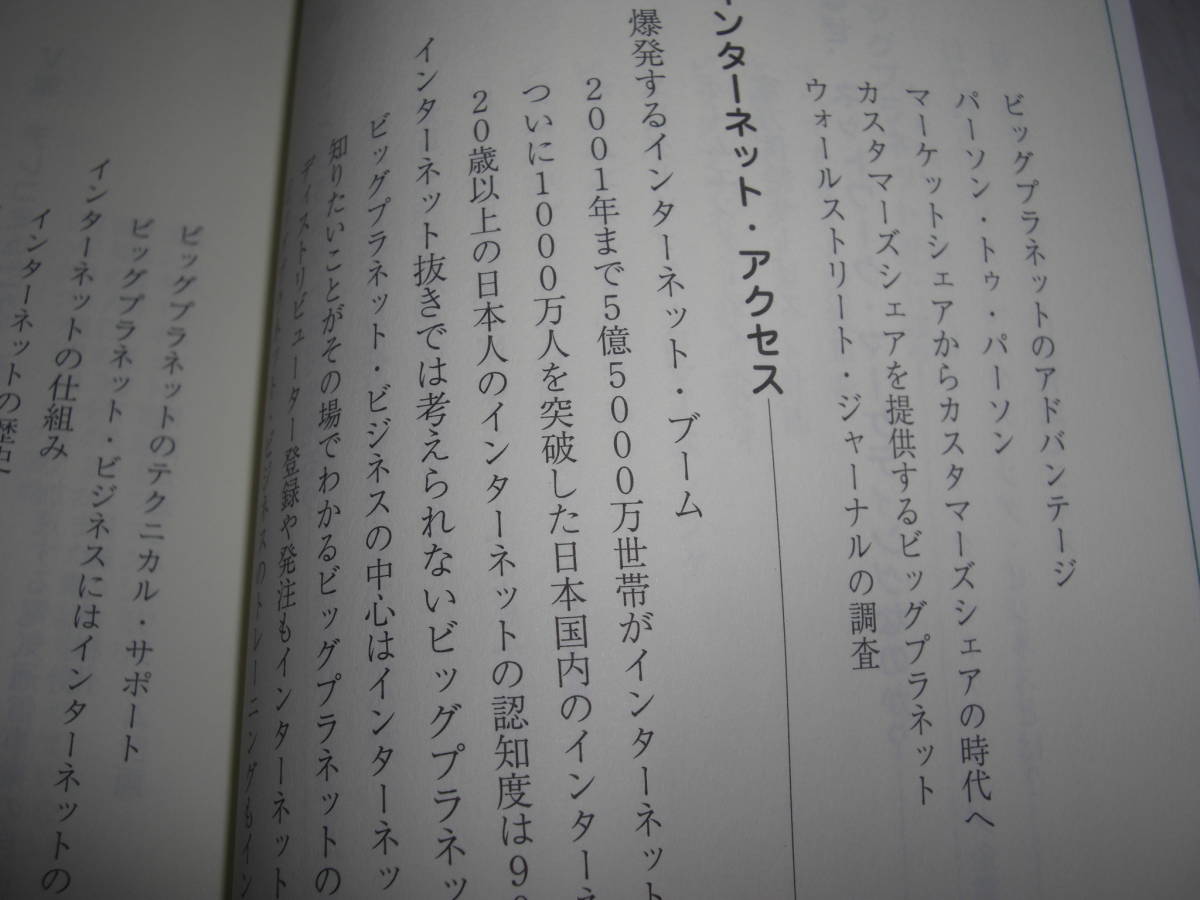 ビッグプラネットのアドバンテージ
パーソン・トゥ・パーソン
マーケットシェアからカスタマーズシェアの時代へ
カスタマーズシェアを提供するビッグプラネット
ウォールストリート・ジャーナルの調査
インターネット・アクセス
爆発するインターネット・ブーム
2001年まで5億5000万世帯がインターネット
ついに1000万人を突破した日本国内のインターネ
20歳以上の日本人のインターネットの認知度は9
インターネット抜きでは考えられないビッグプラネッ
ビッグプラネット・ビジネスの中心はインターネッ
知りたいことがその場でわかるビッグプラネットの
ディストリビューター登録や発注もインターネット
ビジネスのトレーニングもイン
ビッグプラネットのテクニカル・サポート
ビッグプラネット・ビジネスにはインターネットの
インターネットの仕組み
インターネットの歴史